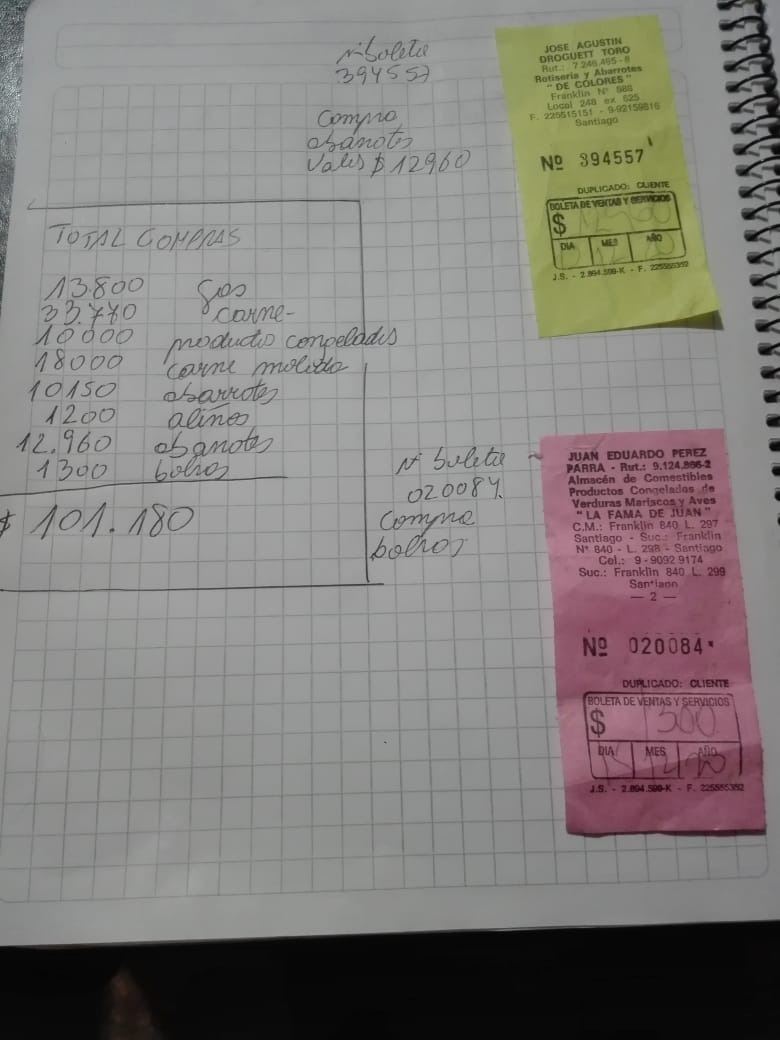 N° boleta
394557
Compra
abarrotes
Vales $ 12960
JOSE AGUSTIN
DROGUETT TORO
Rut.: 7.246.465-8
Rotiseria y Abarrotes
" DE COLORES "
Franklin N° 988
Local 248 ex 625
F. 225515151 - 9-92159816
Santiago
Nº 394557
DUPLICADO: CLIENTE
BOLETA DE VENTAS Y SERVICIOS
$
DIA MES AÑO
12 20
J.S. - 2.894.599-K - F. 225555352
TOTAL COMPRAS
13.800 gas
33.770 carne-
10000 productos congelados
18000 carne molida
10150 abarrotes
1200 alinos
12.960 abarrotes
1300 bolsos
$ 101.180
N° boleta
020084.
Compra
bolsos
JUAN EDUARDO PEREZ
PARRA - Rut.: 9.124.866-2
Almacén de Comestibles
Productos Congelados de
Verduras Mariscos y Aves
" LA FAMA DE JUAN "
C.M.: Franklin 840 L. 297
Santiago - Suc.: Franklin
N° 840 - L. 298 - Santiago
Cel.: 9 - 9092 9174
Suc.: Franklin 840 L. 299
Santiago
— 2 —
Nº 020084
DUPLICADO: CLIENTE
BOLETA DE VENTAS Y SERVICIOS
$ 1300
DIA MES AÑO
15 12 20
J.S. - 2.894.599-K - F. 225555352